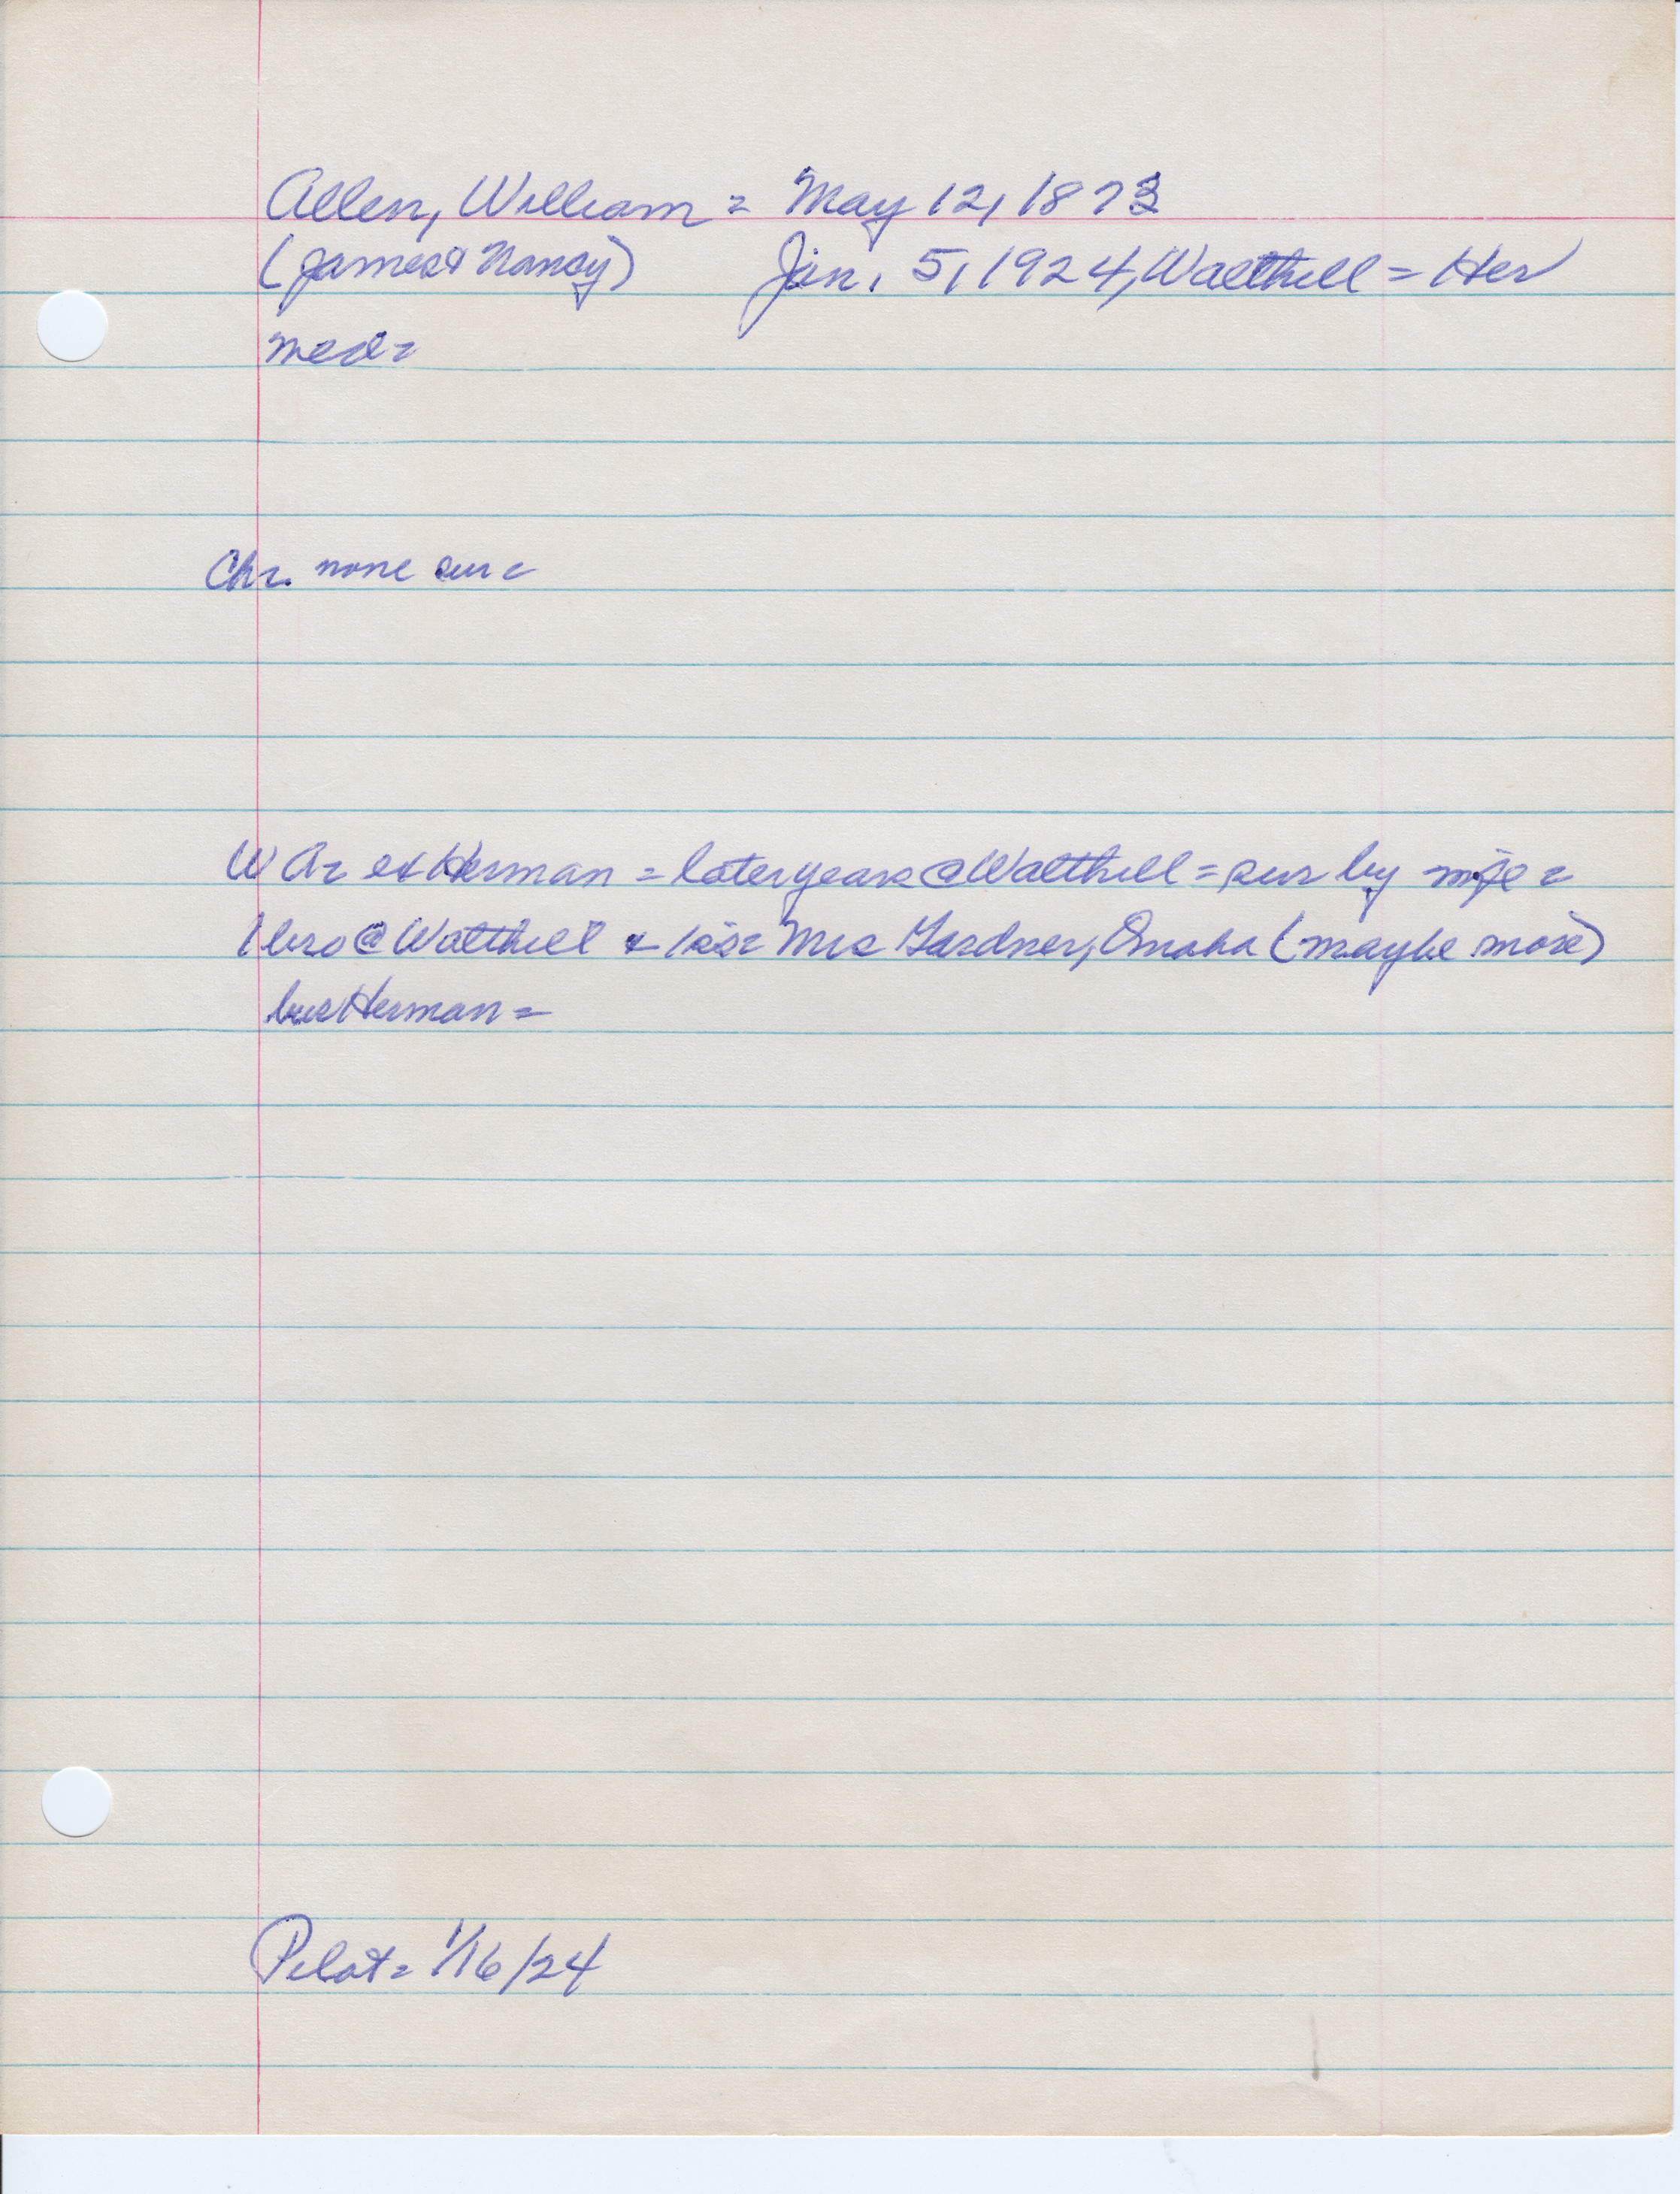 Allen, William = May 12, 1873
(James & Nancy) Jan. 5, 1924, Walthill = Her
med=
Chr. none sur =
W A = ex Herman = later years @ Walthill = sur by wife =
1 bro @ Walthill & 1 sis = Mrs Gardner, Omaha (maybe more)
bur Herman =
Pilot = 1/16/24